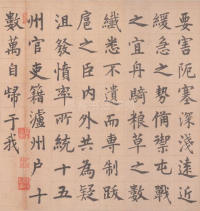 要害阨塞深淺遠近
緩急之勢備禦屯戰
之宜舟騎糧草之數
纖悉不遺而專制跋
扈之臣內外共為疑
沮發憤率所統十五
州官吏籍瀘州戶十
數萬自歸于我